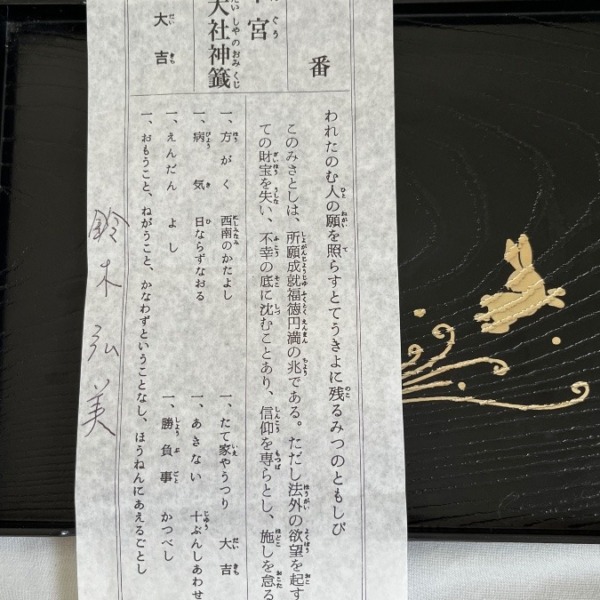 番
宮
大社神籤
大吉
われたのむ人の願を照らすとてうきよに残るみつのともしび
このみさとしは、所願成就福徳円満の兆である。ただし法外の欲望を起す
ての財宝を失い、不幸の底に沈むことあり、信仰を専らとし、施しを怠る
一、方がく 西南のかたよし 一、たて家やうつり 大吉
一、病気 日ならずなおる 一、あきない 十ぶんしあわせ
一、えんだん よし 一、勝負事 かつべし
一、おもうこと、ねがうこと、かなわずということなし、ほうねんにあえるごとし
鈴木弘美